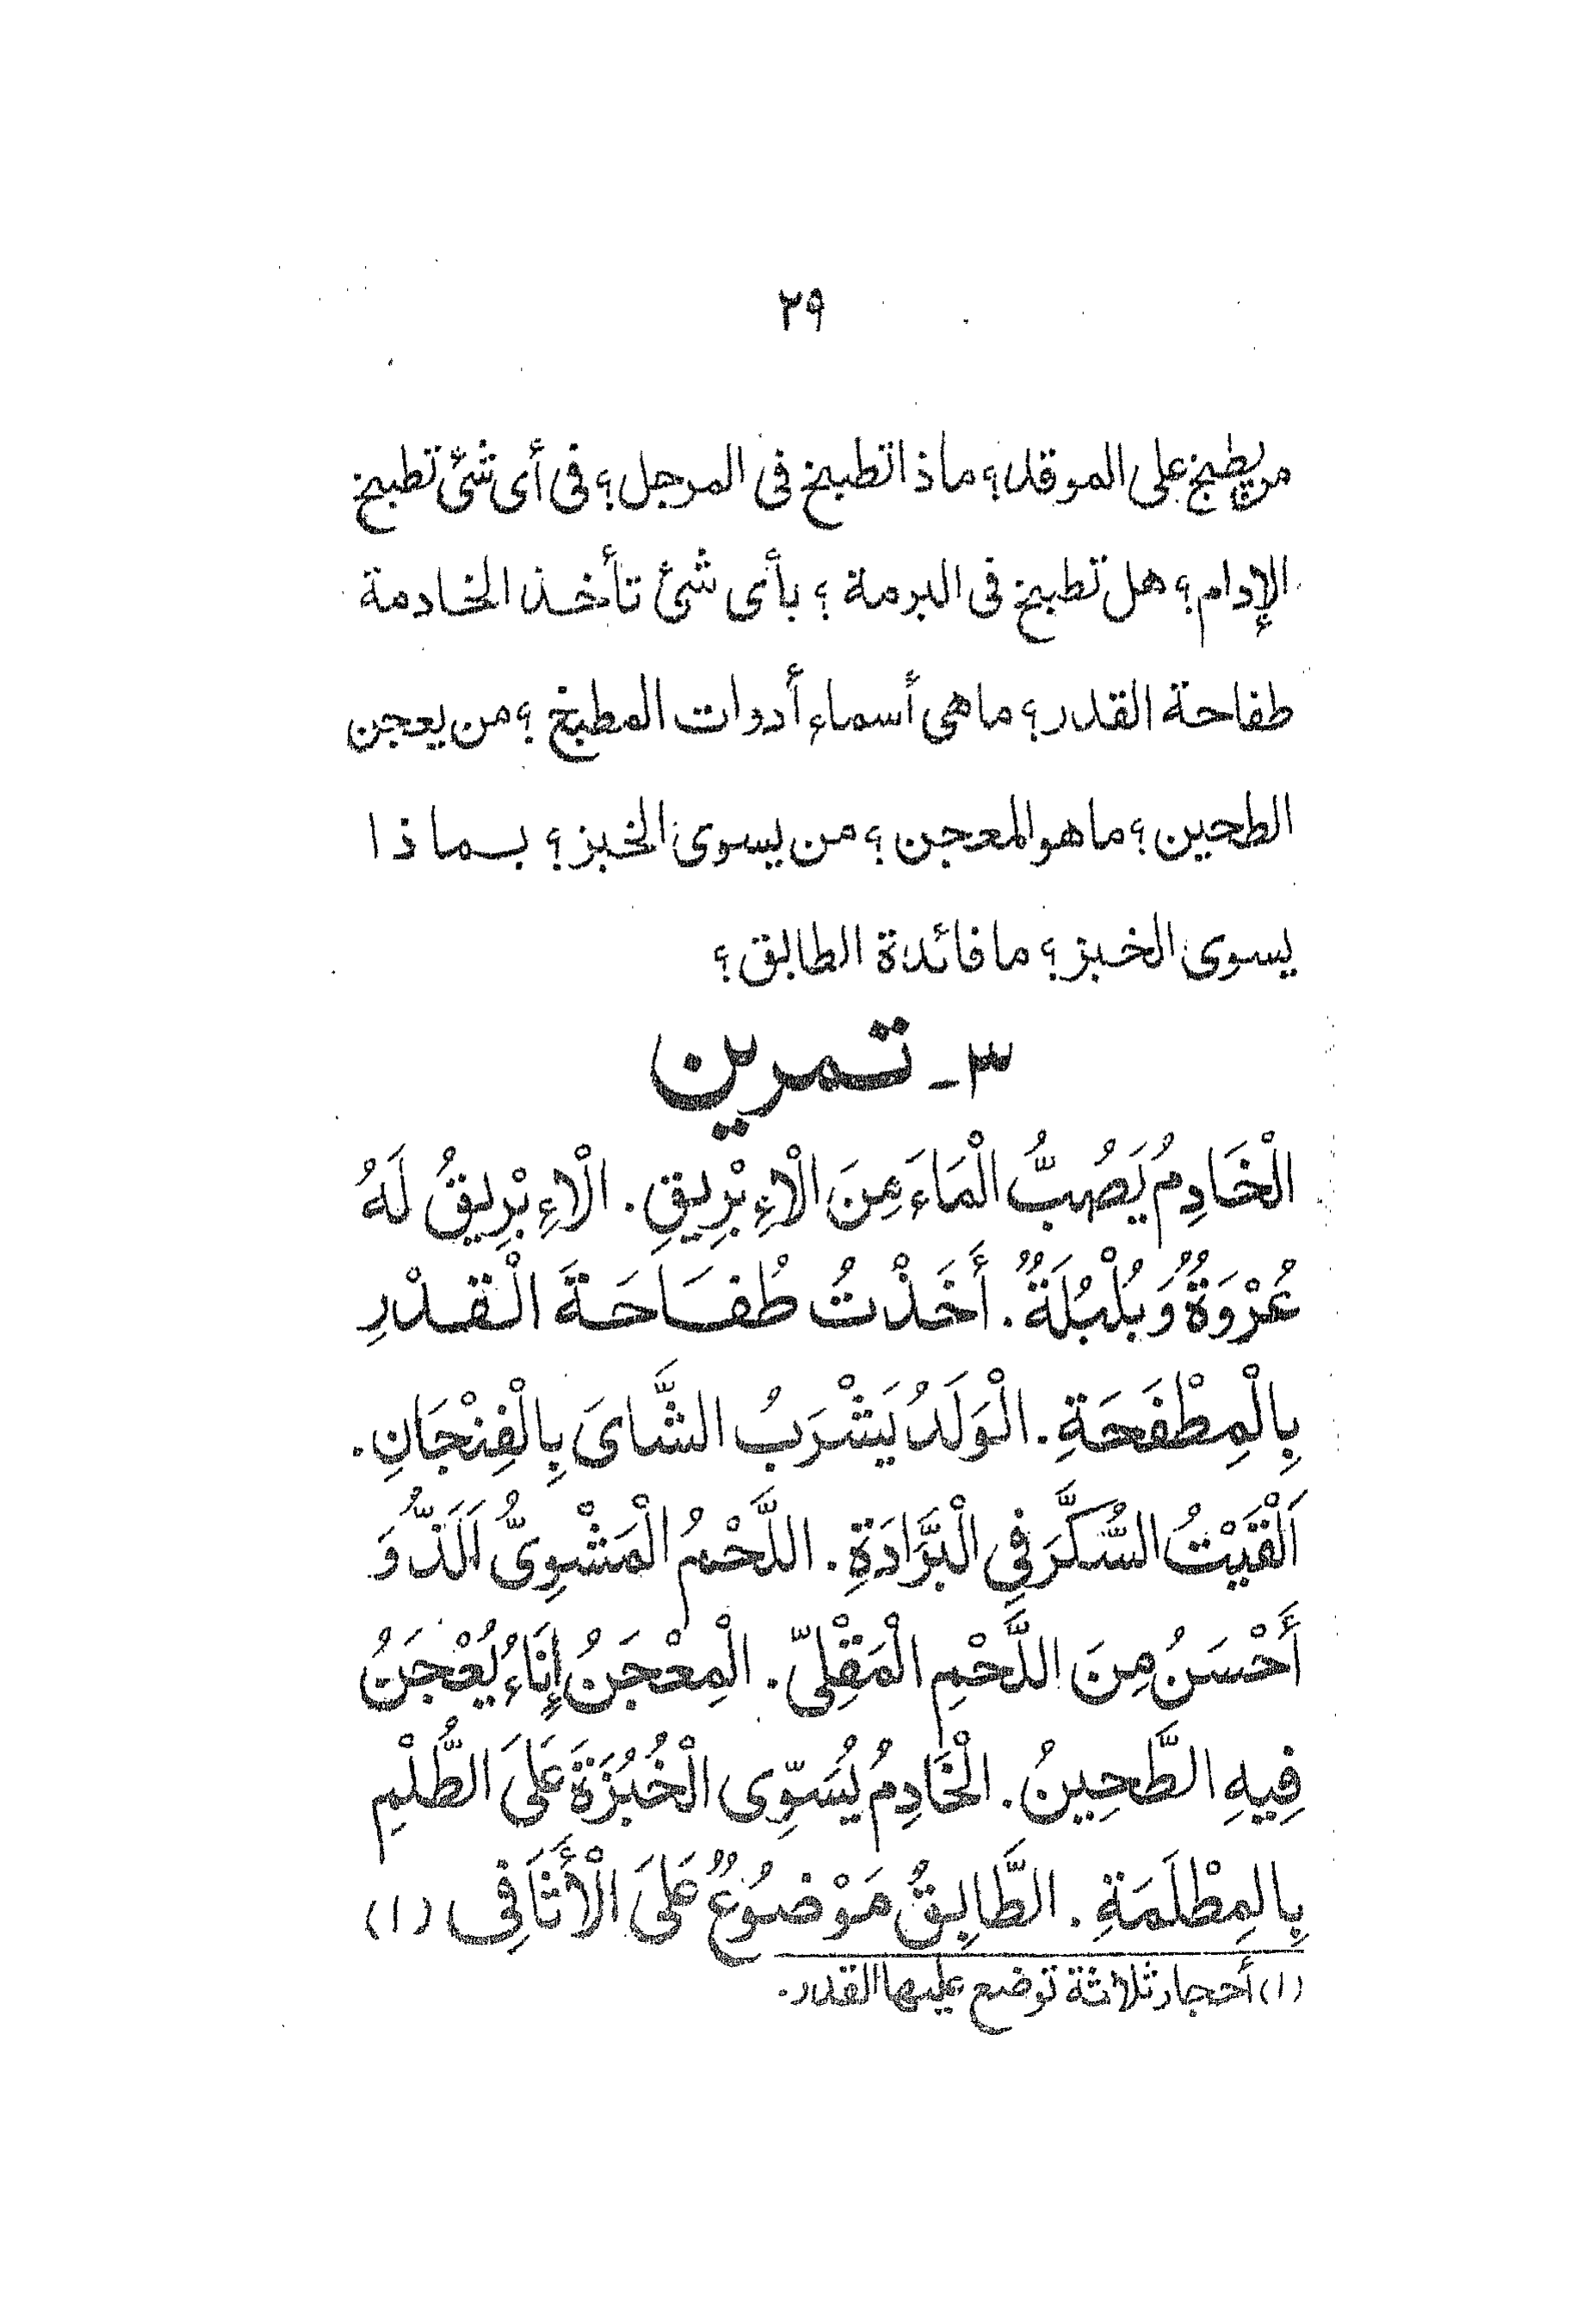 ٢٩
من يطبخ على الموقد؟ ماذا تطبخ فى المرجل؟ فى أى شئ تطبخ
الإدام؟ هل تطبخ فى البرمة؟ بأى شئ تأخذ الخادمة
طفاحة القدر؟ ماهى أسماء أدوات المطبخ؟ من يعجن
الطحين؟ ماهو المعجن؟ من يسوى الخبز؟ بماذا
يسوى الخبز؟ ما فائدة الطابق؟
٣ - تمرين
الْخَادِمُ يَصُبُّ الْمَاءَ مِنَ الْاِءِبْرِيقِ. الْاِءِبْرِيقُ لَهُ
عُرْوَةٌ وَبُلْبُلَةٌ. أَخَذْتُ طُفَاحَةَ الْقِدْرِ
بِالْمِطْفَحَةِ. الْوَلَدُ يَشْرَبُ الشَّاىَ بِالْفِنْجَانِ.
اَلْقَيْتُ السُّكَّرَ فِي الْبَرَّادَةِ. اللَّحْمُ الْمَشْوِىُّ اَلَذُّ وَ
أَحْسَنُ مِنَ اللَّحْمِ الْمَقْلِىِّ. الْمِعْجَنُ إِنَاءٌ يُعْجَنُ
فِيهِ الطَّحِينُ. الْخَادِمُ يُسَوِّى الْخُبْزَةَ عَلَى الطُّلْمِ
بِالمِطْلَمَةِ. الطَّابِقُ مَوْضُوعٌ عَلَى الْأَثَافِى (١)
(١) أحجار ثلاثة توضع عليها القدر.